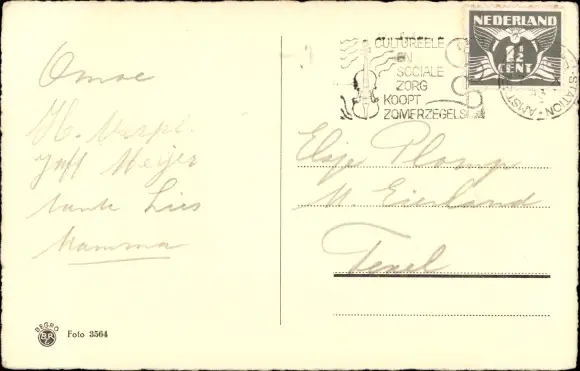 Omoe
Juff Meyer
tante Lies
Mamma
CULTUREELE
EN
SOCIALE
ZORG
KOOPT
ZOMERZEGELS
NEDERLAND
1½
CENT
STATION - AMST
Elsje Plomp
N. Eierland
Texel
BEGRO
Foto 3564